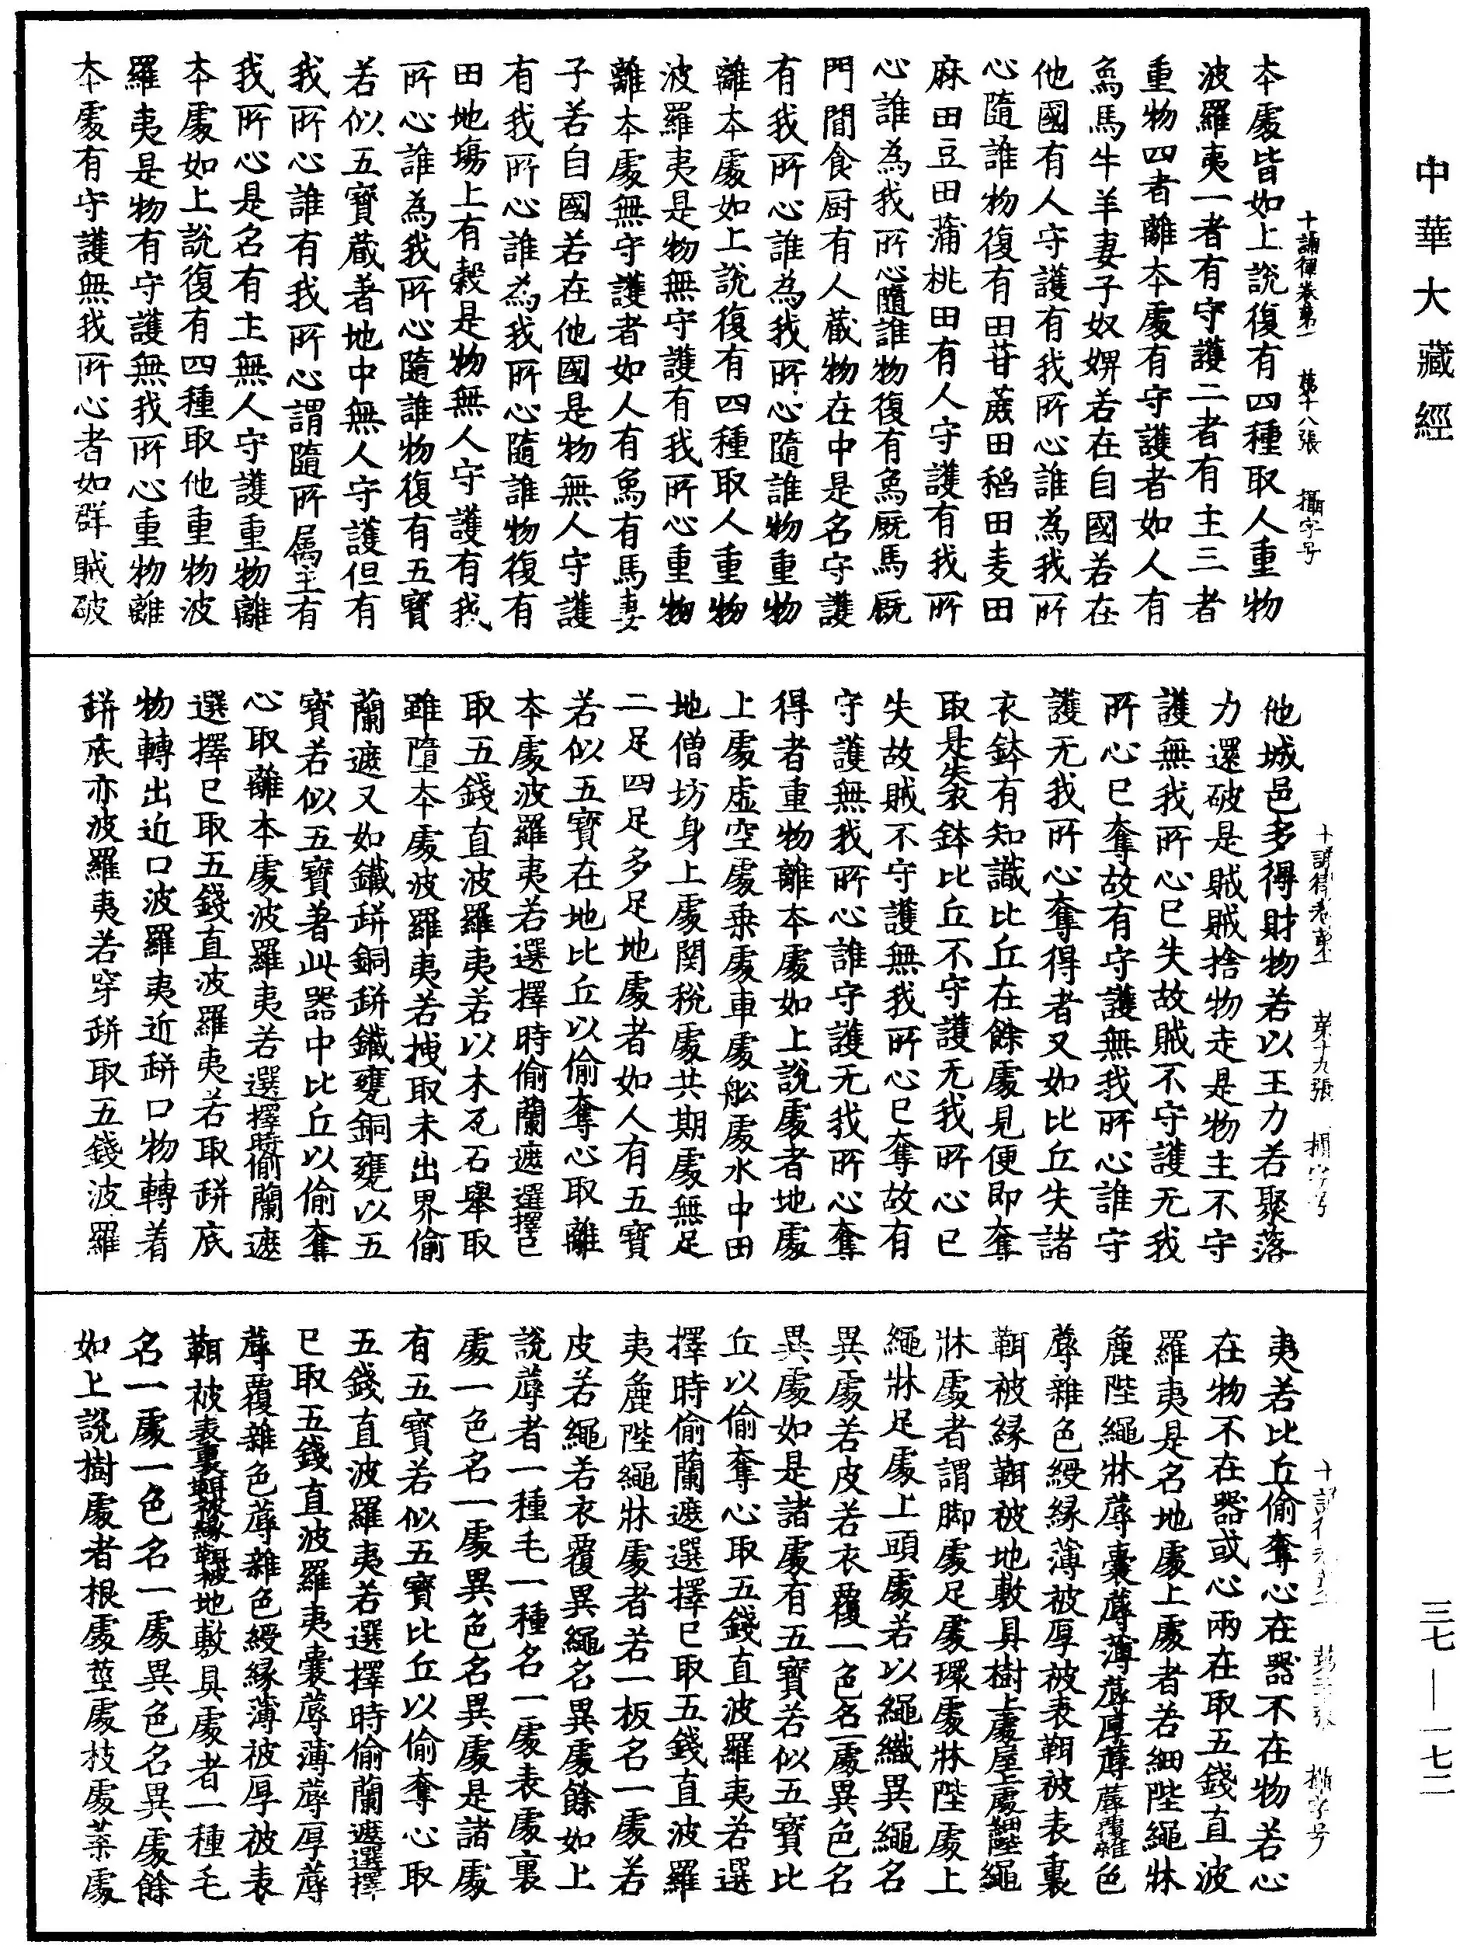 中華大藏經
三七—一七二
十誦律卷第一 第十八張 攝字号
本處皆如上說復有四種取人重物
波羅夷一者有守護二者有主三者
重物四者離本處有守護者如人有
象馬牛羊妻子奴婢若在自國若在
他國有人守護有我所心誰為我所
心隨誰物復有田苷蔗田稻田麦田
麻田豆田蒲桃田有人守護有我所
心誰為我所心隨誰物復有象厩馬厩
門間食厨有人藏物在中是名守護
有我所心誰為我所心隨誰物重物
離本處如上說復有四種取人重物
波羅夷是物無守護有我所心重物
離本處無守護者如人有象有馬妻
子若自國若在他國是物無人守護
有我所心誰為我所心隨誰物復有
田地場上有穀是物無人守護有我
所心誰為我所心隨誰物復有五寶
若似五寶藏著地中無人守護但有
我所心誰有我所心謂隨所属主有
我所心是名有主無人守護重物離
本處如上說復有四種取他重物波
羅夷是物有守護無我所心重物離
本處有守護無我所心者如群賊破
十誦律卷第一 第十九張 攝字号
他城邑多得財物若以王力若聚落
力還破是賊賊捨物走是物主不守
護無我所心已失故賊不守護无我
所心已奪故有守護無我所心誰守
護无我所心奪得者又如比丘失諸
衣鉢有知識比丘在餘處見便即奪
取是失衣鉢比丘不守護无我所心已
失故賊不守護無我所心已奪故有
守護無我所心誰守護无我所心奪
得者重物離本處如上說處者地處
上處虛空處乘處車處舩處水中田
地僧坊身上處関稅處共期處無足
二足四足多足地處者如人有五寶
若似五寶在地比丘以偷奪心取離
本處波羅夷若選擇時偷蘭遮選擇已
取五錢直波羅夷若以木瓦石舉取
雖墮本處波羅夷若拽取未出界偷
蘭遮又如鐵缾銅缾鐵甕銅甕以五
寶若似五寶著此器中比丘以偷奪
心取離本處波羅夷若選擇時偷蘭遮
選擇已取五錢直波羅夷若取缾底
物轉出近口波羅夷近缾口物轉着
缾底亦波羅夷若穿缾取五錢波羅
夷若比丘偷奪心在器不在物若心
在物不在器或心兩在取五錢直波
羅夷是名地處上處者若細陛繩牀
麁陛繩牀蓐囊蓐薄蓐厚蓐蓐覆雜色
蓐雜色綬緣薄被厚被表䩸被表裏
䩸被緣䩸被地敷具樹上處屋上處細陛繩
牀處者謂脚處足處環處牀陛處上
繩牀足處上頭處若以繩織異繩名
異處若皮若衣覆一色名一處異色名
異處如是諸處有五寶若似五寶比
丘以偷奪心取五錢直波羅夷若選
擇時偷蘭遮選擇已取五錢直波羅
夷麁陛繩牀處者若一板名一處若
皮若繩若衣覆異繩名異處餘如上
說蓐者一種毛一種名一處表處裏
處一色名一處異色名異處是諸處
有五寶若似五寶比丘以偷奪心取
五錢直波羅夷若選擇時偷蘭遮選擇
已取五錢直波羅夷囊蓐薄蓐厚蓐
蓐覆雜色蓐雜色綬緣薄被厚被表
䩸被表裏䩸被緣䩸被地敷具處者一種毛
名一處一色名一處異色名異處餘
如上說樹處者根處莖處枝處葉處